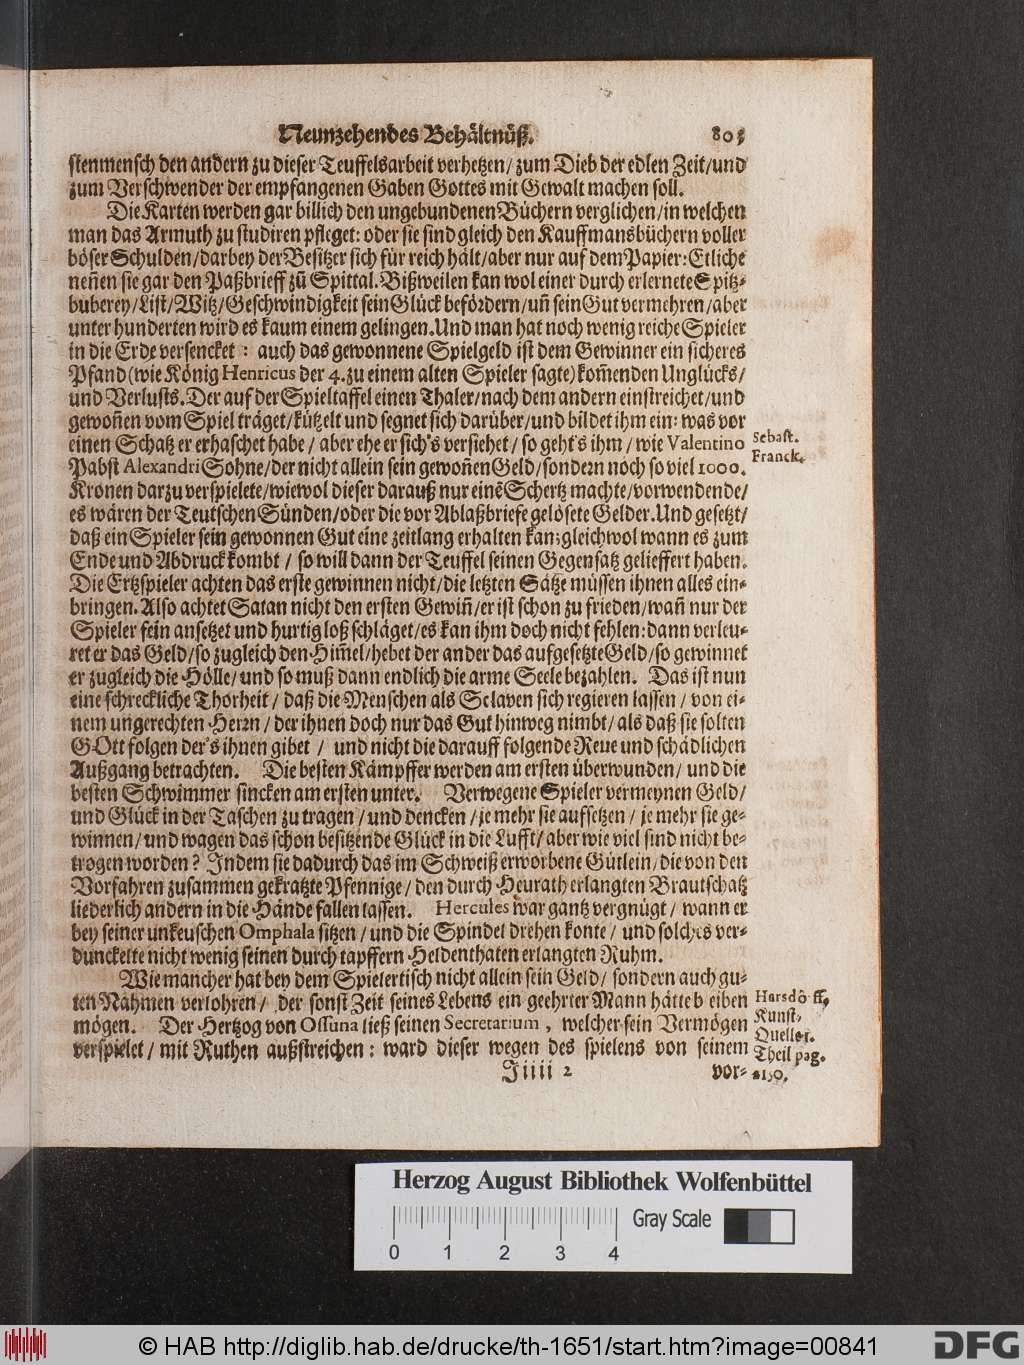 Neunzehendes Behältnüß. 805
stenmensch den andern zu dieser Teuffelsarbeit verhetzen/ zum Dieb der edlen Zeit/und
zum Verschwender der empfangenen Gaben Gottes mit Gewalt machen soll.
Die Karten werden gar billich den ungebundenen Büchern verglichen/in welchen
man das Armuth zu studiren pfleget: oder sie sind gleich den Kauffmansbüchern voller
böser Schulden/darbey der Besitzer sich für reich hält/aber nur auf dem Papier: Etliche
neñen sie gar den Paßbrieff zũ Spittal. Bißweilen kan wol einer durch erlernete Spitz-
buberey/List/Witz/Geschwindigkeit sein Glück befördern/uñ sein Gut vermehren/aber
unter hunderten wird es kaum einem gelingen. Und man hat noch wenig reiche Spieler
in die Erde versencket : auch das gewonnene Spielgeld ist dem Gewinner ein sicheres
Pfand (wie König Henricus der 4. zu einem alten Spieler sagte) kom̃enden Unglücks/
und Verlusts. Der auf der Spieltaffel einen Thaler/nach dem andern einstreichet/und
gewoñen vom Spiel träget/kützelt und segnet sich darüber/und bildet ihm ein: was vor
einen Schatz er erhaschet habe / aber ehe er sich's versiehet/ so geht's ihm / wie Valentino
Sebast.
Franck.
Pabst Alexandri Sohne/der nicht allein sein gewoñen Geld/sondern noch so viel 1000.
Kronen darzu verspielete/wiewol dieser darauß nur einẽ Schertz machte/vorwendende/
es wären der Teutschen Sünden/oder die vor Ablaßbriefe gelösete Gelder. Und gesetzt/
daß ein Spieler sein gewonnen Gut eine zeitlang erhalten kan; gleichwol wann es zum
Ende und Abdruck kombt / so will dann der Teuffel seinen Gegensatz gelieffert haben.
Die Ertzspieler achten das erste gewinnen nicht/die letzten Sätze müssen ihnen alles ein-
bringen. Also achtet Satan nicht den ersten Gewiñ/er ist schon zu frieden/wañ nur der
Spieler fein ansetzet und hurtig loß schläget/es kan ihm doch nicht fehlen: dann verleu-
ret er das Geld/so zugleich den Him̃el/hebet der ander das aufgesetzte Geld/so gewinnet
er zugleich die Hölle/und so muß dann endlich die arme Seele bezahlen. Das ist nun
eine schreckliche Thorheit / daß die Menschen als Sclaven sich regieren lassen / von ei-
nem ungerechten Herrn / der ihnen doch nur das Gut hinweg nimbt/ als daß sie solten
GOtt folgen der's ihnen gibet / und nicht die darauff folgende Reue und schädlichen
Außgang betrachten. Die besten Kämpffer werden am ersten überwunden/ und die
besten Schwimmer sincken am ersten unter. Verwegene Spieler vermeynen Geld/
und Glück in der Taschen zu tragen / und dencken / je mehr sie aufsetzen / je mehr sie ge-
winnen/und wagen das schon besitzende Glück in die Lufft/aber wie viel sind nicht be-
trogen worden? Indem sie dadurch das im Schweiß erworbene Gütlein/die von den
Vorfahren zusammen gekratzte Pfennige/ den durch Heurath erlangten Brautschatz
liederlich andern in die Hände fallen lassen. Hercules war gantz vergnügt / wann er
bey seiner unkeuschen Omphala sitzen / und die Spindel drehen konte / und solches ver-
dunckelte nicht wenig seinen durch tapffern Heldenthaten erlangten Ruhm.
Wie mancher hat bey dem Spielertisch nicht allein sein Geld/ sondern auch gu-
ten Nahmen verlohren/ der sonst Zeit seines Lebens ein geehrter Mann hätte b eiben
mögen. Der Hertzog von Ossuna ließ seinen Secretarium, welcher sein Vermögen
verspielet / mit Ruthen außstreichen: ward dieser wegen des spielens von seinem
Harsdô ff.
Kunst-
Queller.
Theil pag.
Jiiii 2 vor-
Herzog August Bibliothek Wolfenbüttel
0 1 2 3 4
Gray Scale
© HAB http://diglib.hab.de/drucke/th-1651/start.htm?image=00841
DFG